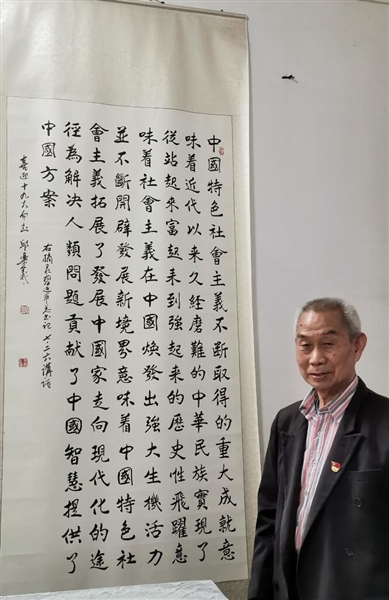 中國特色社會主義不斷取得的重大成就意
味着近代以來久經磨難的中華民族實現了
從站起來富起來到強起來的歷史性飛躍意
味着社會主義在中國煥發出強大生機活力
並不斷開辟發展新境界意味着中國特色社
會主義拓展了發展中國家走向現代化的途
徑為解決人類問題貢獻了中國智慧提供了
中國方案
右摘录習近平总书记七二六講话
喜迎十九大